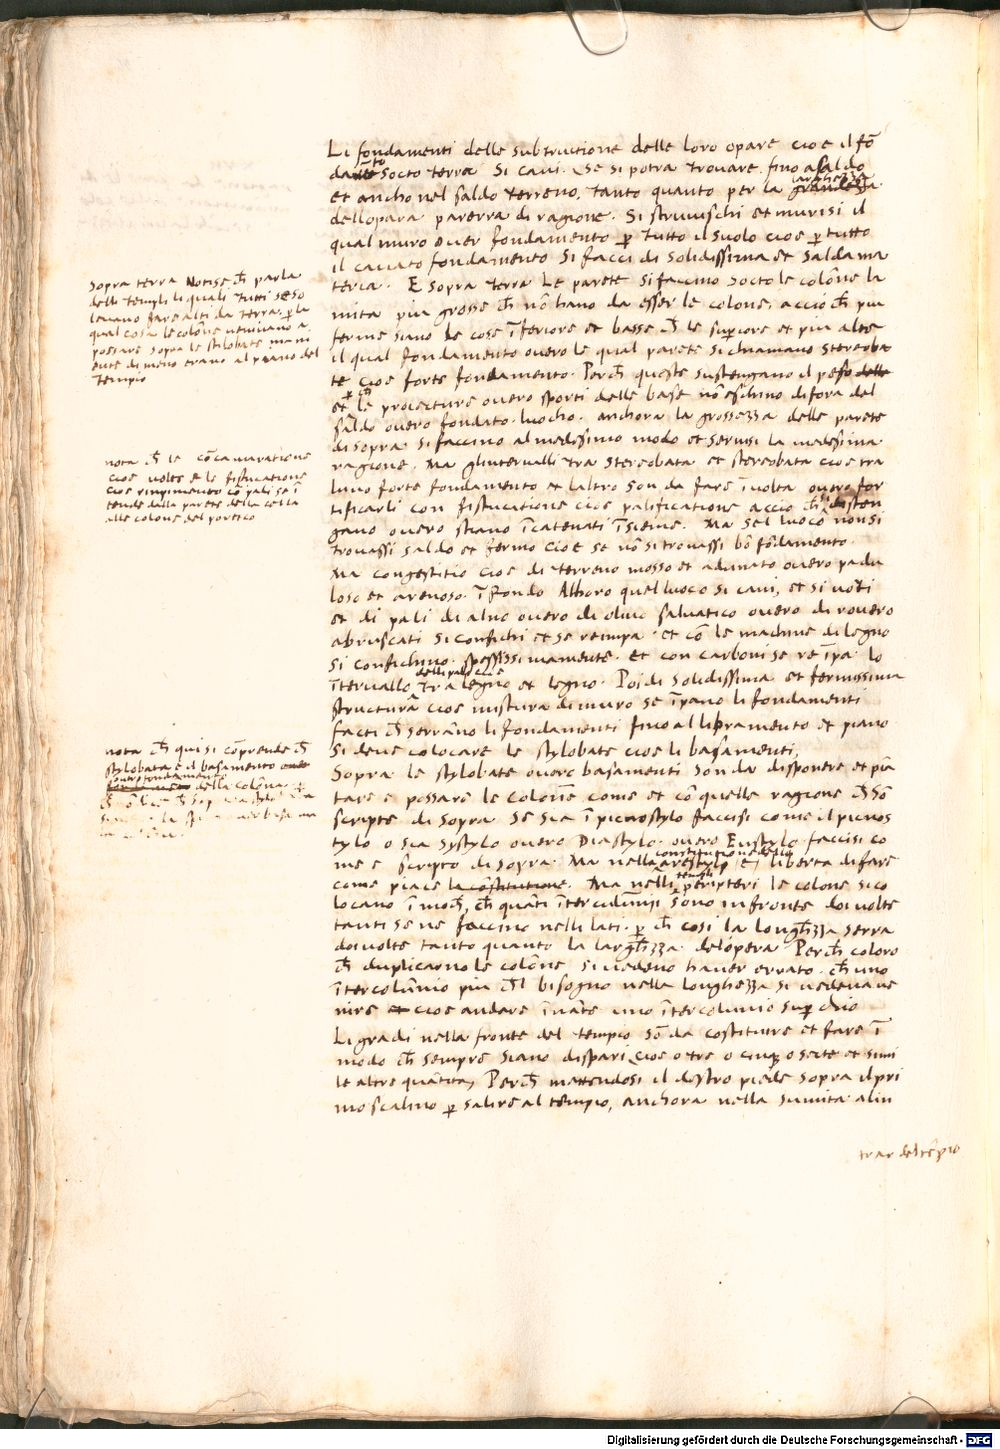 Li fondamenti delle substructione delle loro opare cioe il fō
damēto socto terra si cavi. Se si potra trovare fino a saldo
et ancho nel saldo terreno, tanto quanto per la largheza
dellopara parerra di ragione. Si struischi et murisi il
qual muro over fondamento p tutto il suolo cioe p tutto
il cavato fondamento si facci di solidissima et salda ma
teria. E sopra terra le parete si faccino socto le colōne la
mita piu grosse ch̄ nō hano da esser le colone, accio ch̄ piu
ferme siano le cose īferiore et basse ch̄ le superiore et piu alte
il qual fondamento overo le qual parete si chiamano stereoba
te cioe forte fondamento. Perch̄ queste sustengano il peso delle
et ch̄ le proiecture overo sporti delle base nō eschino di fora del
saldo overo fondato luocho. anchora la grossezza delle parete
di sopra si faccino al medesimo modo et servisi la medesima
ragione. Ma glintervalli tra stereobata et stereobata cioe tra
luno forte fondamento et laltro son da fare ī volta overo for
tificarli con fistucatione cioe palificatione accio ch̄ si disten
gano overo stiano īcatenati īsieme. Ma sel luoco non si
trovassi saldo et fermo cioe se nō si trovassi bō fōdamento.
Ma congestitio cioe di terreno mosso et adunato overo padu
loso et arenoso. ī fondo Alhoro quel luoco si cavi, et si vōti
et di pali di alno overo di olivo salvatico overo di rovero
abruscati si confichi et se reimpa. et cō le machine di legno
si confichino spessissimamente. et con carboni se reīpa lo
īntervallo delli pali cioe tra legno et legno. Poi di solidissima et fermissima
structura cioe mistura di muro se īpano li fondamenti
facti ch̄ serrāno li fondamenti fino al libramento et piano
Si deve colocare le stylobate cioe li basamenti,
Sopra le stylobate overo basamenti son da disponere et piā
tare e possare le colonne come et cō quelle ragione ch̄ sō
scripte di sopra. Se sia ī picnostylo faccisi come il picnos
tylo o sia Systylo overo Diastylo. overo Eustylo. faccisi co
me e scripto di sopra. Ma nella constitutione dello arestylo e liberta di fare
come piace la cōstitutione. Ma nelli templi peripteri le colone si co
locano ī modo, ch̄ quāti īntercolumnii sono in fronte doi volte
tanti se ne faccino nelli lati. p ch̄ cosi la longhezza serra
doi volte tanto quanto la larghezza dellopera Perch̄ coloro
ch̄ duplicarno le colōne, si vedeno haver errato. ch̄ uno
īntercolūnio piu ch̄l bisogno nella longhezza si vedeva ve
nire et cioe andare īnāte uno īntercolunio superchio
Li gradi nella fronte del tempio sō da costituire et fare ī
modo ch̄ sempre siano dispari, cioe o tre o cinq o sette et simi
le altre quātita, Perch̄ mettendosi il destro piede sopra il pri
mo scalino p salire al tempio, anchora nella sumita alin
trar del tēpio
Sopra terra Notise ch̄ parla
delli templi li quali tutti se so
levano fare alti da terra, p la
qual cosa le colōne venivano a
possare sopra le stilobate
al piano del
tempio
nota ch̄ le cōcamaratione
cioe volte e le fistucatione
cioe rimpimento cō pali se ī
tende dalla parete della cella
alle colone del portico
nota ch̄ qui si cōprende ch̄
stylobata e il basamento
overo fondamento della colōna